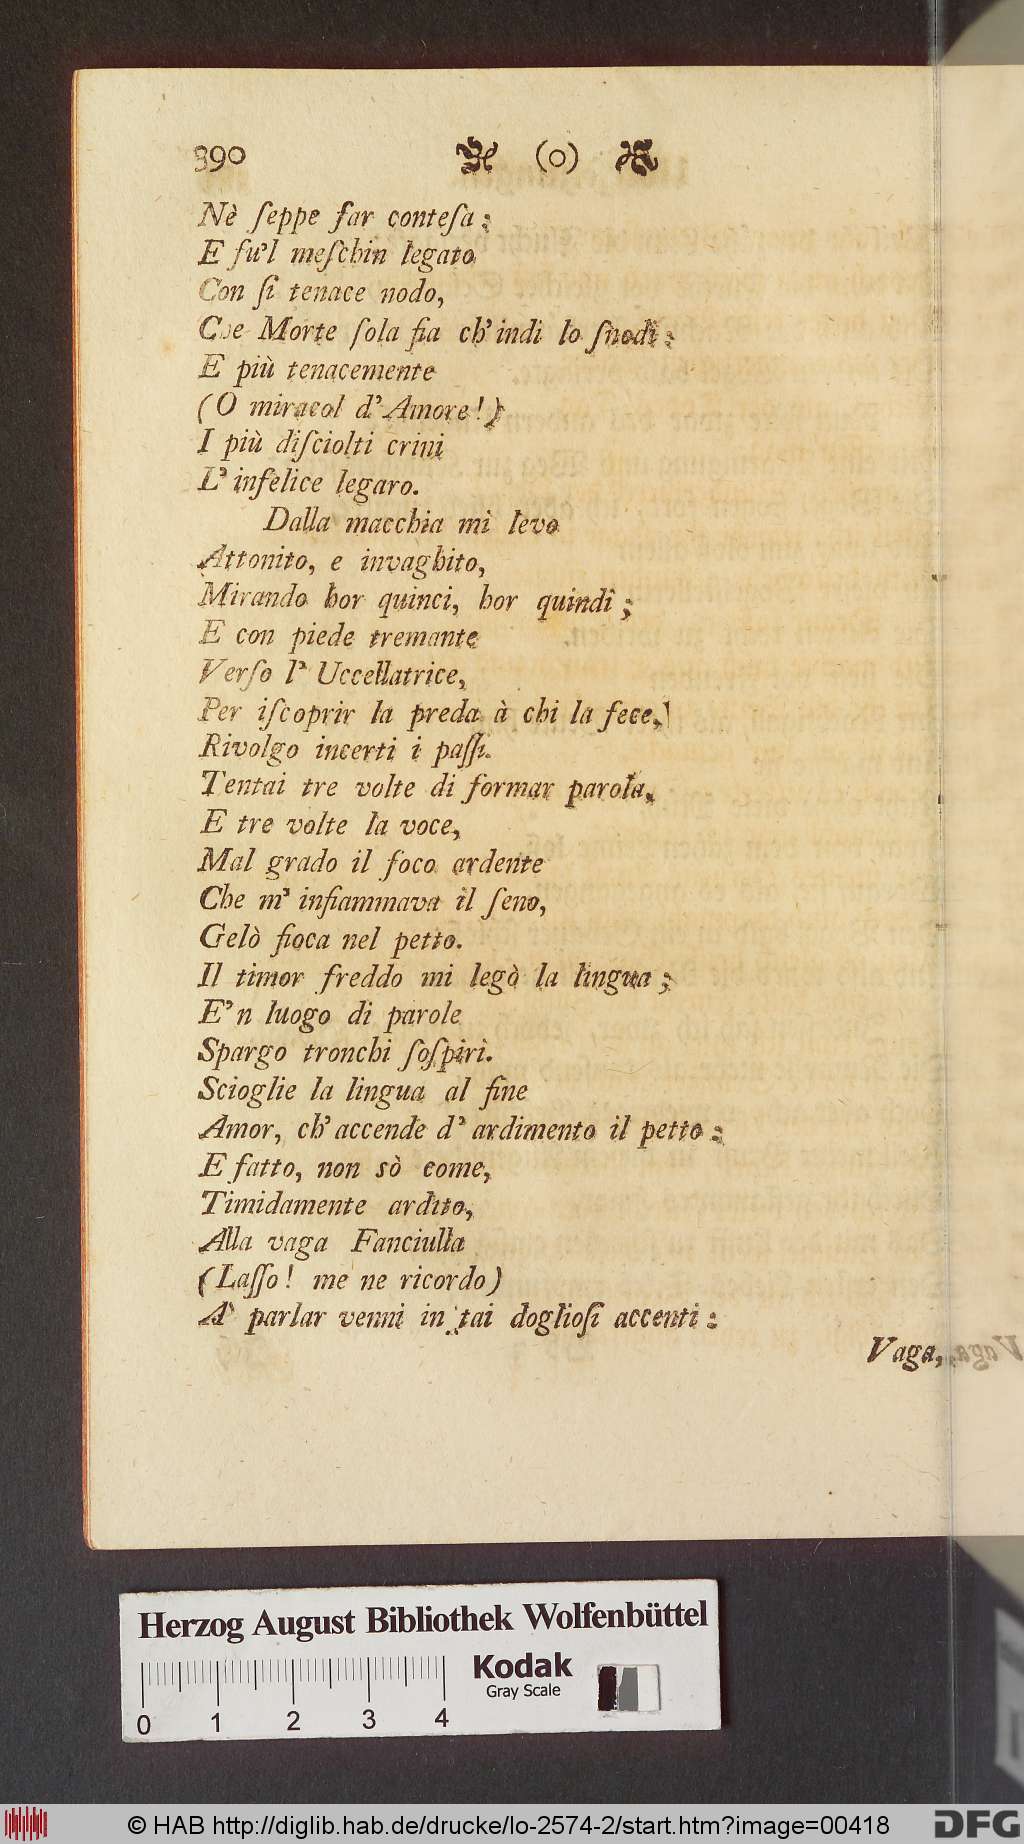 390 (o)
Nè ſeppe far conteſa;
E fu'l meſchin legato
Con ſi tenace nodo,
Che Morte ſola fia ch' indi lo ſnodi:
E più tenacemente
(O miracol d' Amore!)
I più diſciolti crini
L' infelice legaro.
Dalla macchia mi levo
Attonito, e invaghito,
Mirando hor quinci, hor quindi;
E con piede tremante
Verſo l' Uccellatrice,
Per iſcoprir la preda à chi la fece,
Rivolgo incerti i paſſi.
Tentai tre volte di formar parola,
E tre volte la voce,
Mal grado il foco ardente
Che m' infiammava il ſeno,
Gelò fioca nel petto.
Il timor freddo mi legò la lingua;
E' n luogo di parole
Spargo tronchi ſoſpiri.
Scioglie la lingua al fine
Amor, ch' accende d' ardimento il petto:
E fatto, non sò come,
Timidamente ardito,
Alla vaga Fanciulla
(Laſſo! me ne ricordo)
A' parlar venni in tai doglioſi accenti:
Vaga,
Herzog August Bibliothek Wolfenbüttel
Kodak
Gray Scale
0 1 2 3 4
© HAB http://diglib.hab.de/drucke/lo-2574-2/start.htm?image=00418
DFG